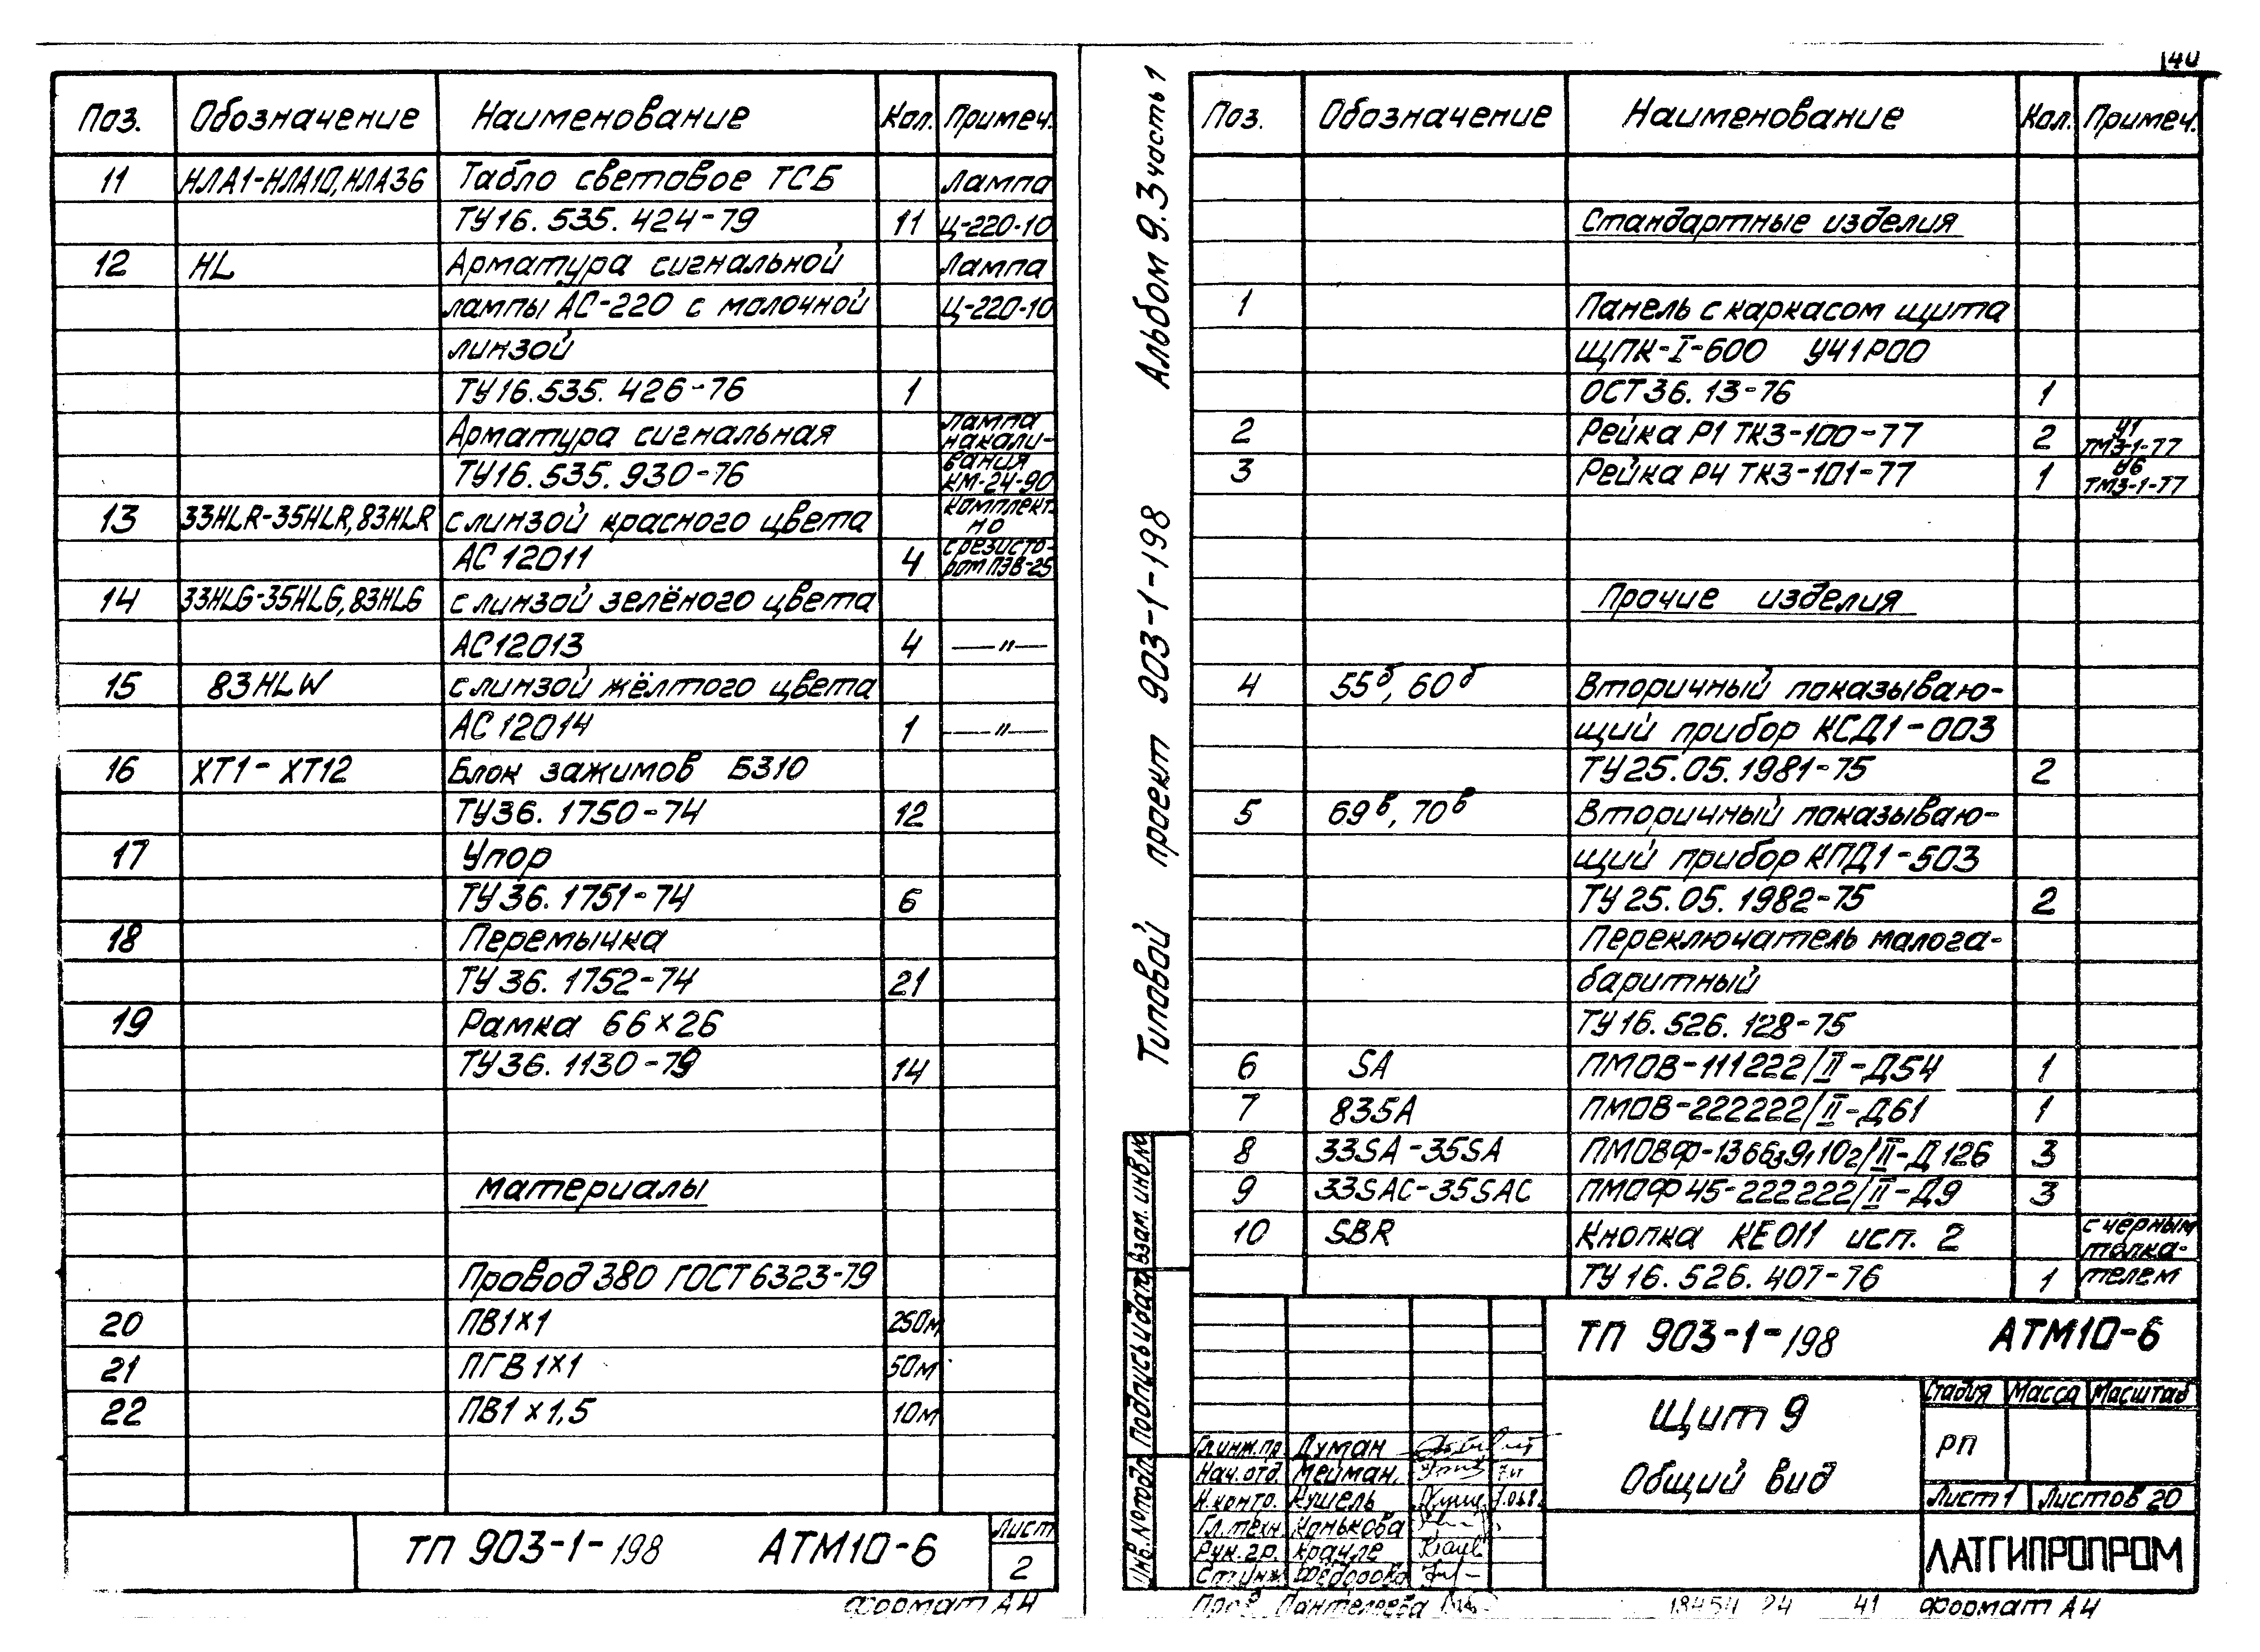 Поз. Обозначение Наименование Кол. Примеч.
11 НЛА1-НЛА10, НЛА36 Табло световое ТСБ Лампа
ТУ16.535.424-79 11 Ц-220-10
12 HL Арматура сигнальной Лампа
лампы АС-220 с молочной Ц-220-10
линзой
ТУ16.535.426-76 1
Арматура сигнальная лампа накали-
ТУ16.535.930-76 вания КМ-24-90
13 33HLR-35HLR, 83HLR с линзой красного цвета комплект-но
АС 12011 4 с резисто-ром ПЭВ-25
14 33HLG-35HLG, 83HLG с линзой зелёного цвета
АС12013 4 —"—
15 83HLW с линзой жёлтого цвета
АС 12014 1 —"—
16 ХТ1-ХТ12 Блок зажимов БЗ10
ТУ36.1750-74 12
17 Упор
ТУ 36.1751-74 6
18 Перемычка
ТУ 36.1752-74 21
19 Рамка 66×26
ТУ36.1130-79 14
материалы
Провод 380 ГОСТ 6323-79
20 ПВ1×1 250м
21 ПГВ 1×1 50м
22 ПВ1×1,5 10м
ТП 903-1-198 АТМ10-6 Лист
2
Формат А4
Альбом 9.3 часть 1
Типовой проект 903-1-198
140
Поз. Обозначение Наименование Кол. Примеч.
Стандартные изделия
1 Панель с каркасом щита
ЩПК-I-600 У41Р00
ОСТ 36.13-76 1
2 Рейка Р1 ТК3-100-77 2 У1 ТМ3-1-77
3 Рейка Р4 ТК3-101-77 1 У6 ТМ3-1-77
Прочие изделия
4 55б, 60б Вторичный показываю-
щий прибор КСД1-003
ТУ25.05.1981-75 2
5 69в, 70в Вторичный показываю-
щий прибор КПД1-503
ТУ 25.05.1982-75 2
Переключатель малога-
баритный
ТУ 16.526.128-75
6 SA ПМОВ-111222/II-Д54 1
7 83SA ПМОВ-222222/II-Д61 1
8 33SA-35SA ПМОВФ-1366з9,102/II-Д126 3
9 33SAC-35SAC ПМОФ45-222222/II-Д9 3
10 SBR Кнопка КЕ011 исп. 2 с чёрным толка-
ТУ 16.526.407-76 1 телем
Инв.№ подл. Подпись и дата Взам. инв.№
ТП 903-1-198 АТМ10-6
Щит 9
Общий вид
Стадия Масса Масштаб
РП
Лист 1 Листов 20
ЛАТГИПРОПРОМ
Гл.инж.пр. Думан
Нач.отд. Мейман
Н.контр. Кушель
Гл.техн. Конькова
Рук.гр. Крауле
Ст.инж. Федорова
Пров. Пантелеева
18454 24 41 Формат А4